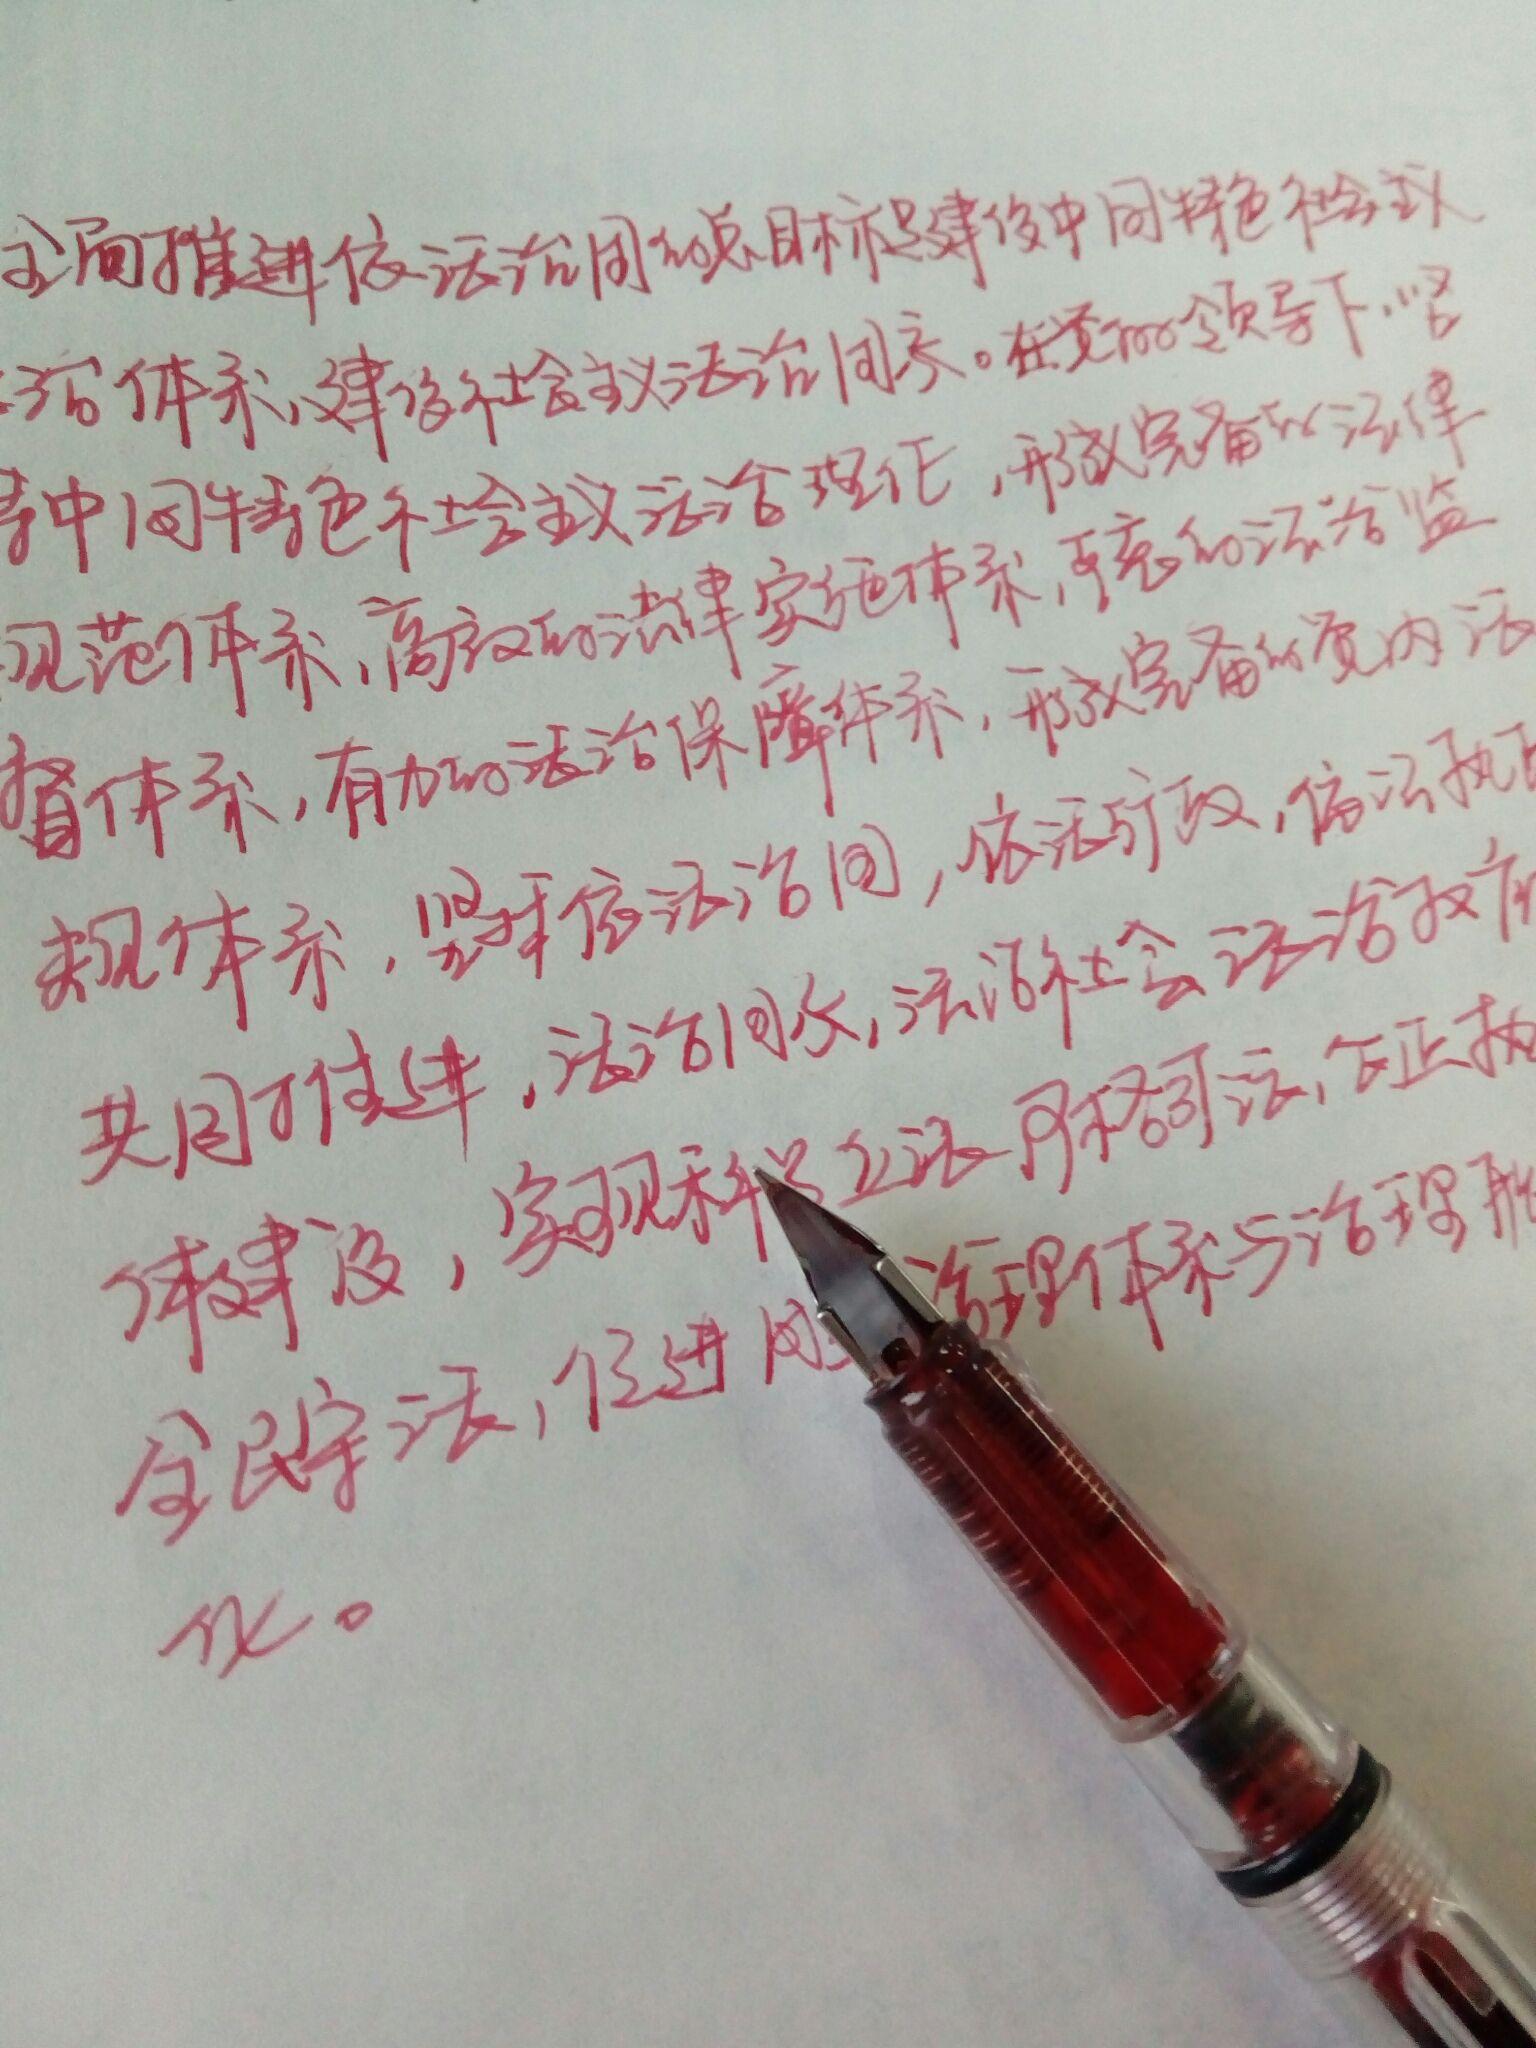 全面推进依法治国的总目标是建设中国特色社会主义
法治体系,建设社会主义法治国家。在党的领导下,坚
持中国特色社会主义法治理论,形成完备的法律
规范体系,高效的法律实施体系,严密的法治监
督体系,有力的法治保障体系,形成完备的党内法
规体系,坚持依法治国,依法行政,依法执政
共同推进,法治国家,法治社会法治政府
体建设,实现科学立法严格司法,公正执
全民守法,促进国治理体系与治理
化。